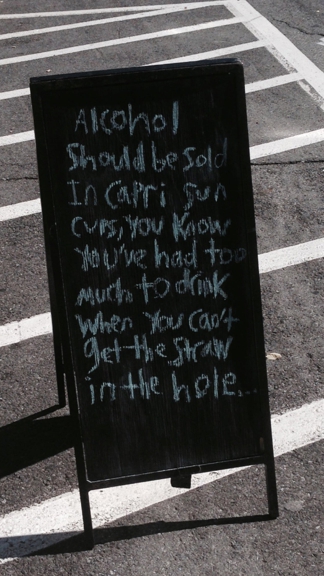 Alcohol
Should be sold
In Capri sun
cups, you know
you've had too
much to drink
when you can't
get the straw
in the hole...